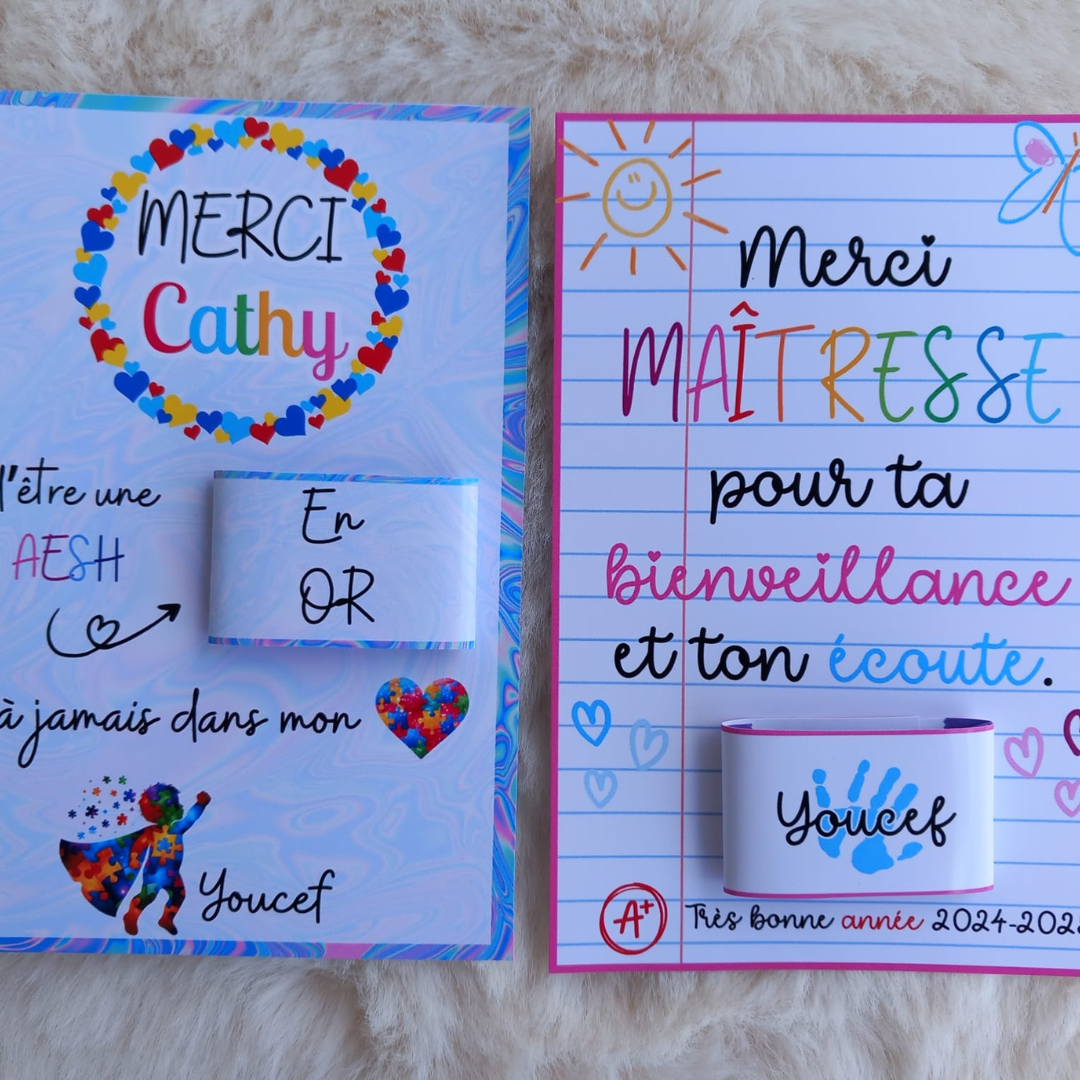 MERCI
Cathy
d'être une
AESH
En
OR
à jamais dans mon
Youcef
Merci
MAÎTRESSE
pour ta
bienveillance
et ton écoute.
Youcef
A+
Très bonne année 2024-2025